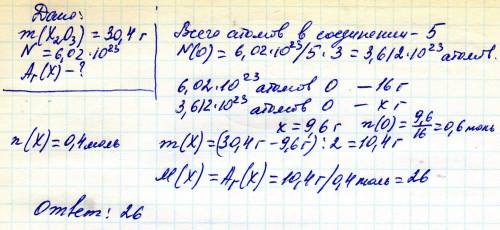 Дано:
m(X₂O₃) = 30,4 г
N = 6,02 · 10²³
Ar(X) - ?
Всего атомов в соединении - 5
N(O) = 6,02 · 10²³/5 · 3 = 3,612 · 10²³ атомов.
6,02 · 10²³ атомов O - 16 г
3,612 · 10²³ атомов O - x г
x = 9,6 г n(O) = 9,6/16 = 0,6 моль
n(X) = 0,4 моль
m(X) = (30,4 г - 9,6 г) : 2 = 10,4 г
M(X) = Ar(X) = 10,4 г / 0,4 моль = 26
Ответ: 26